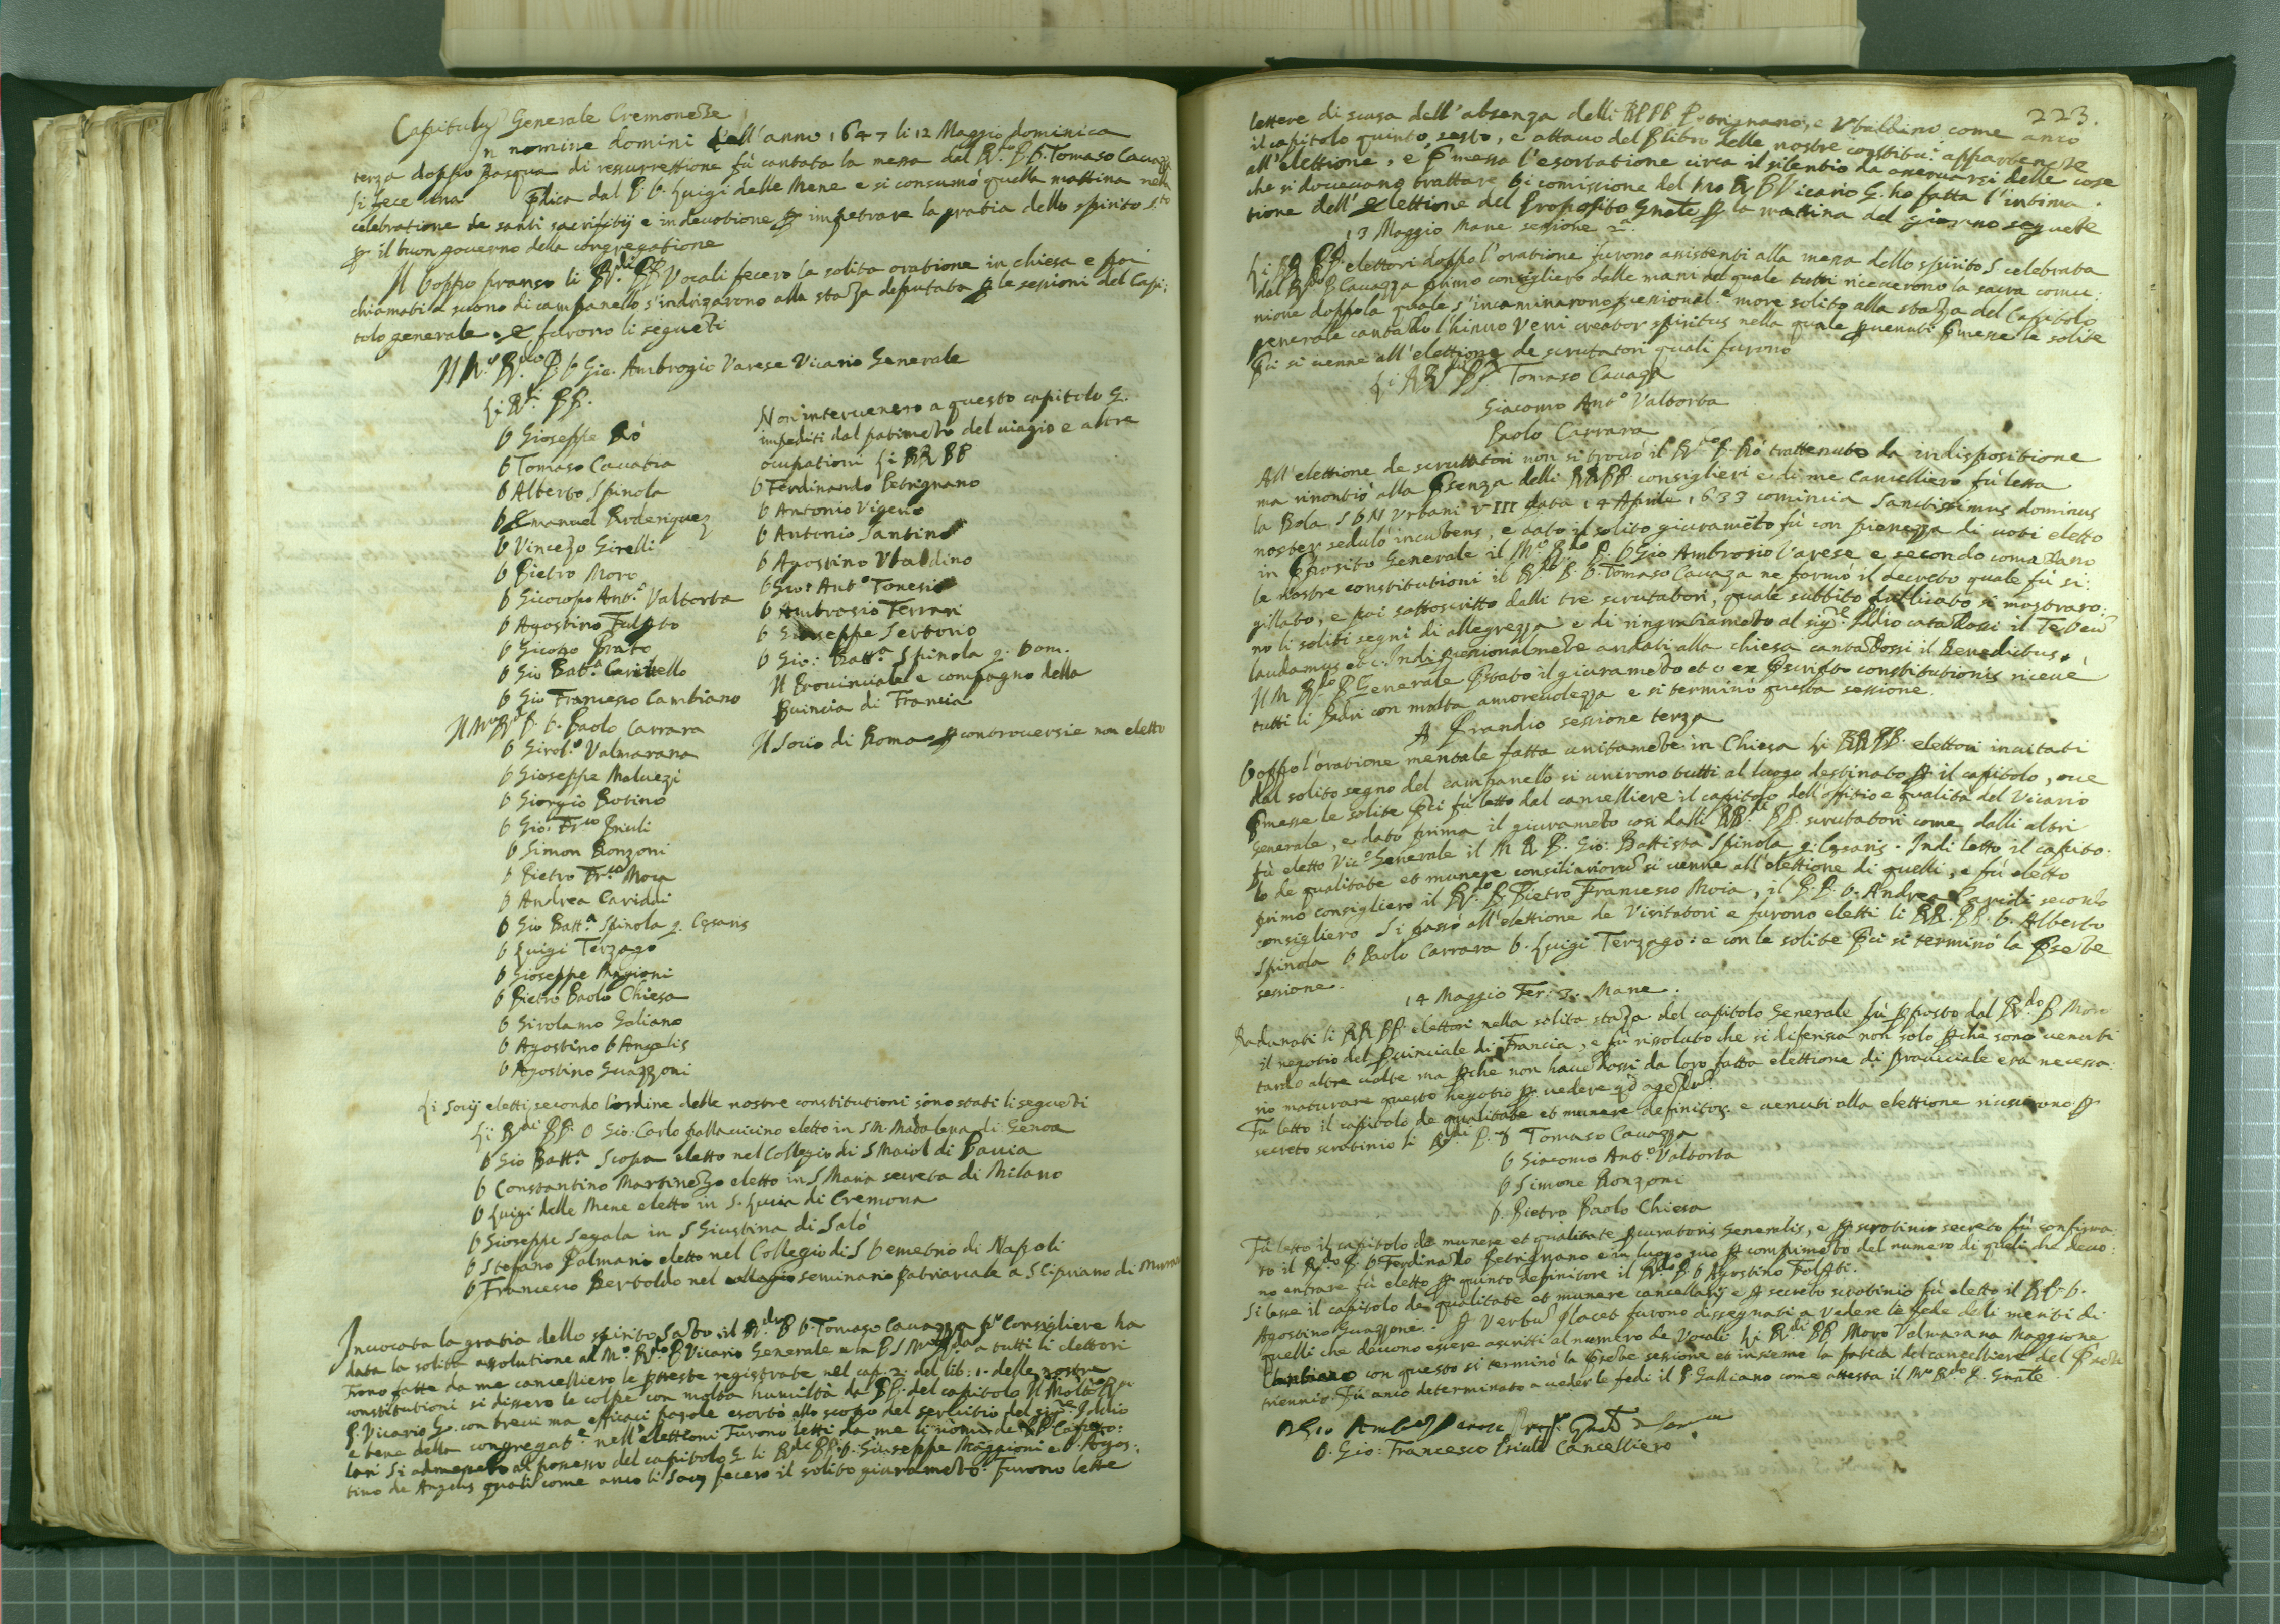 Capitulũ Generale Cremonese
In nomine domini dell'anno 1647 li 12 Maggio dominica
terza doppo Pasqua di resurrettione fù cantata la messa dal R.do P. D. Tomaso Cavazza
si fece una p̃dica dal P. D. Luigi delle Mene e si consumò quella mattina nella
celebratione de santi sacrifitij e in devotione p impetrare la gratia dello spirito s.to
p il buon governo della congregatione
Il doppo pranso li R.di PP. Vocali fecero la solita oratione in chiesa e poi
chiamati a suono di campanello s'indrizarono alla staza deputata p le sessioni del Capi:
tolo generale, e furono li segueti
Il M. R.do P. D Gio. Ambrogio Varese Vicario Generale
Li R.di PP.
D Gioseppe Rò
D Tomaso Cavazza
D Alberto Spinola
D Emanuel Roderiguez
D Vincezo Girelli
D Pietro Moro
D Giacopo Ant.o Valtorta
D Agostino Fulgto
D Giacopo Prato
D Gio Batt.a Caritello
D Gio Francesco Cambiano
Il M. R. P. D. Paolo Carrara
D Girol.o Valmarana
D Gioseppe Malvezi
D Giorgio Botino
D Gio: Fr.co Priuli
D Simon Ronzoni
D Pietro Fr.co Moia
D Andrea Cariddi
D Gio Batt.a Spinola q. Cesaris
D Luigi Terzago
D Gioseppe Magioni
D Pietro Paolo Chiesa
D Girolamo Galiano
D Agostino D Angelis
D Agostino Guazzoni
Non intervenero a questo capitolo G.
impediti dal patimeto del viagio e altre
ocupationi Li RR PP
D Ferdinando Petrignano
D Antonio Vigeno
D Antonio Santino
D Agostino Vbaldino
D Gio: Ant.o Tonesio
D Ambrosio Ferrari
D Gioseppe Sertorio
D Gio: Batt.a Spinola q. Dom.
Il Provinciale e compagno della
Pvincia di Francia
Il Socio di Roma p controversie non eletto
Li Socij eletti secondo l'ordine delle nostre constitutioni sono stati li segueti
Li R.di PP. D Gio: Carlo Pallavicino eletto in S M. Madalena di Genoa
D Gio Batt.a Scopa eletto nel Collegio di S Maiol di Pavia
D Constantino Martinego eletto in S Maria secreta di Milano
D Luigi delle Mene eletto in S. Lucia di Cremona
D Gioseppe Segala in S Giustina di Salò
D Stefano Palmario eletto nel Collegio di S Demetrio di Napoli
D Francesco Bertoldo nel seminario Patriarcale a S Cipriano di Murano
Invocata la gratia dello spirito Sato il R.do P D. Tomaso Cavazza p.o Consigliere ha
data la solita assolutione al M.o R.do P Vicario Generale a tutti li elettori
Furono fatte da me cancelliero le pteste registrate nel cap. 2. del lib. 1. delle nostre
constitutioni si dissero le colpe con molta humiltà da PP. del capitolo Il Molto R.
P. Vicario G. con brevi ma efficaci parole esortò allo scopo del servitio del sig.re Iddio
e bene della congregat.e nell'elettioni Furono letti da me li nomi de PP. Capito:
lari Si admesero al possesso del capitolo G li R.di PP. D. Gioseppe Maggioni e D. Agos:
tino de Angelis quali come anco li Socij fecero il solito giurameto. Furono lette
223.
lettere di scusa dell'absenza delli RR PP Petrignano, e Vbaldino come anco
il capitolo quinto, sesto, e ottavo del p libro delle nostre constitu.i appartenete
all'elettione, e pmessa l'esortatione circa il silentio da osservarsi delle cose
che si dovevano trattare Di comissione del Mto R P Vicario G. ho fatta l'intima
tione dell'elettione del Proposito Gnāle p la mattina del giorno seguete
13 Maggio Mane sessione 2.
Li RR PP. elettori doppo l'oratione furono assistenti alla messa dello spirito S celebrata
dal R.do P Cavazza primo consigliero dalle mani del quale tutti riceverono la sacra comu:
nione doppo la quale s'incaminarono pcessional.e more solito alla staza del Capitolo
generale cantado l'hinno Veni creator spiritus nella quale pvenuti pmesse le solite
pci si venne all'elettione de scrutatori quali furono
Li RR.di PP. Tomaso Cavaza
Giacomo Ant.o Valtorta
Paolo Carrara
All'elettione de scrutatori non si trovò il R.do P. Rò trattenuto da indispositione
ma rinontiò alla psenza delli RR PP consiglieri e di me Cancelliero fù letta
la Bola S D N Vrbani VIII data 14 Aprile 1633 comincia Sanctissimus dominus
noster sedulò incubens, e dato il solito giurameto fù con pienezza di voti eletto
in Pposito Generale il M.o R.do P. D Gio Ambrosio Varese e secondo comadano
le nostre constitutioni il R.do P. D. Tomaso Cavaza ne formò il decreto quale fù si:
gillato, e poi sottoscritto dalli tre scrutatori, quale subbito publicato si mostraro:
no li soliti segni di allegrezza e di ringratiameto al sig.re Iddio catadosi il Te Deũ
laudamus etc. Indi pcessionalmete andati alla chiesa cantadossi il Benedictus,
Il M R.do P Generale pstato il giurameto et ex pscripto constitutionis ricevè
tutti li Padri con molta amorevolezza e si terminò questa sessione.
A Prandio sessione terza
Doppo l'oratione mentale fatta unitamete in Chiesa li RR PP. elettori invitati
dal solito segno del campanello si unirono tutti al luogo destinato p il capitolo, ove
pmesse le solite pci fù letto dal cancelliere il capitolo dell'offitio e qualità del Vicario
Generale, e dato prima il giurameto così dalli RR.di PP. scrutatori come dalli altri
fù eletto Vic.o Generale il M R P. Gio: Battista Spinola q. Cesaris. Indi letto il capito:
lo de qualitate et munere consiliariorũ si venne all'elettione di quelli, e fù eletto
primo consigliero il R.do P. Pietro Francesco Moia, il R. P. D. Andrea Caridi secondo
consigliero Si passò all'elettione de Visitatori e furono eletti li RR. PP. D. Alberto
Spinola D Paolo Carrara D. Luigi Terzago: e con le solite pci si terminò la psete
sessione.
14 Maggio Fer. 3. Mane.
Radunati li RR PP. elettori nella solita staza del capitolo Generale fù pposto dal R.do P Moro
il negotio del Pvinciale di Francia, e fù rissoluto che si diferisca non solo pche sono venuti
tardo altre volte ma pche non havedossi da loro fatta elettione di provinciale era necessa:
rio maturare questo negotio p vedere qd agedũ.
Fù letto il capitolo de qualitate et munere definitor. e venuti alla elettione riuscirono p
secreto scrotinio li R.di P. D Tomaso Cavazza
D Giacomo Ant.o Valtorta
D Simone Ronzoni
D. Pietro Paolo Chiesa
Fù letto il capitolo de munere et qualitate Pcuratoris Generalis, e p scrotinio secreto fù confirma
to il R.do P. D Ferdinado Petrignano e in luogo suo p compimeto del numero di quelli che devo:
no entrare fù eletto p quinto definitore il R.do P. D Agostino Folgti.
Si lesse il capitolo de qualitate et munere cancellarij e p secreto scrotinio fù eletto il R P. D.
Agostino Guazzone. p Verbũ Placet furono dissegnati a Vedere le fede delli meriti di
quelli che devono essere ascritti al numero de Vocali Li R.di PP Moro Valmarana Maggione
Cambiano con questo si terminò la psete sessione et insieme la fatica del cancelliere del psete
triennio. Fù anco determinato a veder le fedi il P. Galliano come attesta il M.o R.do P. Gnāle.
D. Gio: Francesco Priuli Cancelliero